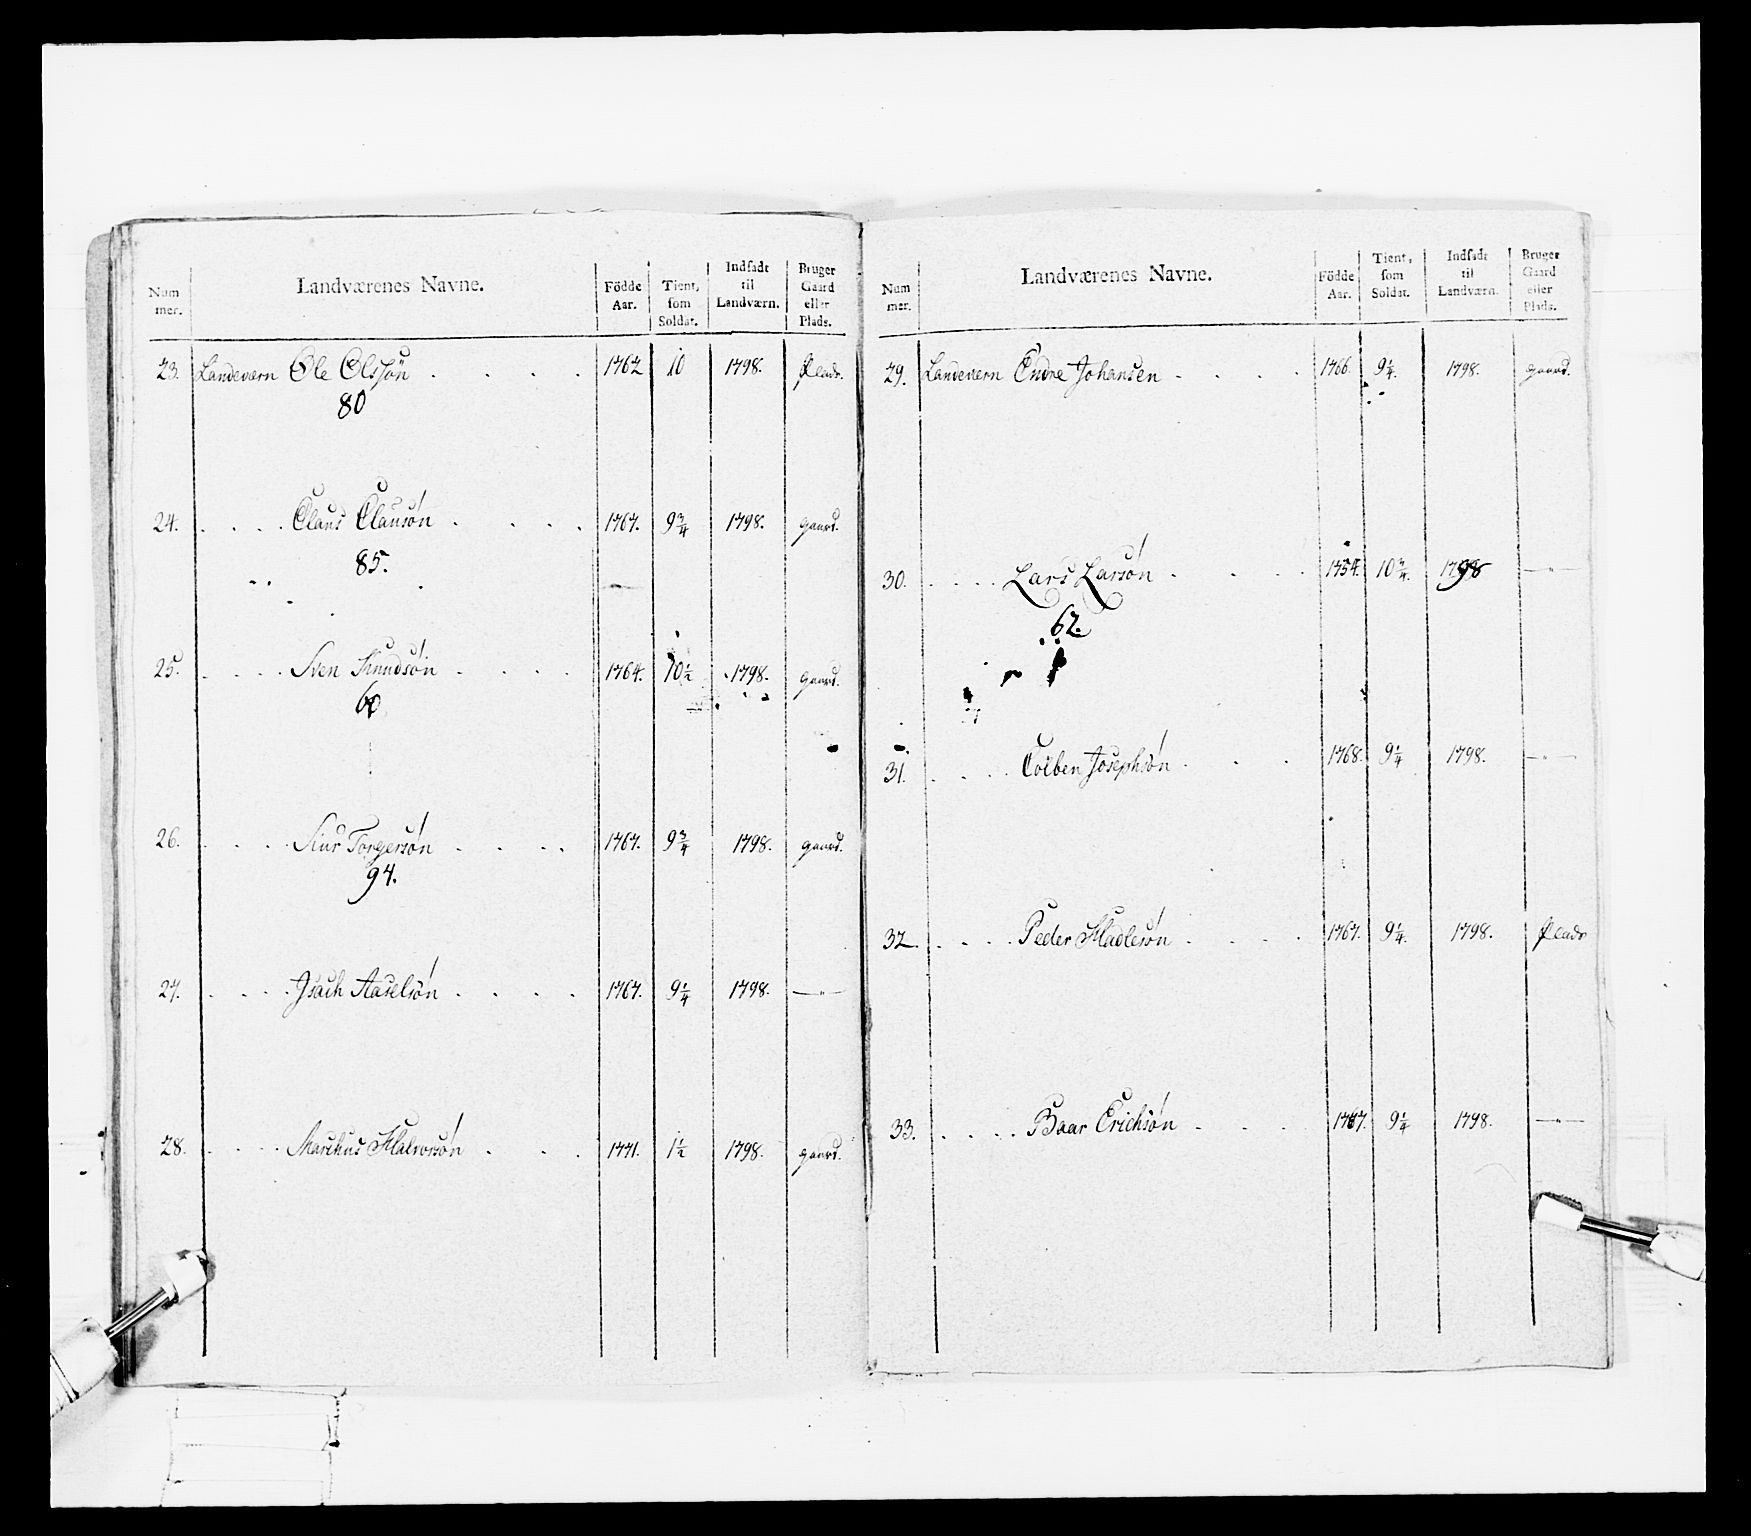 Num mer. Landværenes Navne. Födde Aar. Tient, som Soldat. Indsadt til Landværn. Bruger Gaard eller Plads.
23. Landevern Ole Olssøn . . . . 1762 10 1798. Plads.
80
24. . . . . Claus Clausøn . . . . 1767. 9 3/4 1798. gaard.
85.
25. . . . . Sven Knudsøn . . . . 1764. 10 1/2 1798. gaard.
60
26. . . . . Siur Torgersøn . . . . 1767. 9 3/4 1798. gaard.
94.
27. . . . . Isach Aaselsøn . . . . 1767. 9 1/4 1798. — " —
28. . . . . Marchus Halvorsøn . . . 1771. 1 1/2 1798. gaard.
Num mer. Landværenes Navne. Födde Aar. Tient, som Soldat. Indsadt til Landværn. Bruger Gaard eller Plads.
29. Landevern Endre Johansen . . . . 1766. 9 1/4. 1798. gaard.
30. . . . . Lars Larsøn . . . 1754. 10 3/4. 1798 — " —
62.
31. . . . . Tolben Josephsøn . . . 1768. 9 1/4 1798. — " —
32. . . . . Peder Hadlesøn . . . . 1767. 9 1/4. 1798. Plads
33. . . . . Baar Erichsøn . . . . 1767. 9 1/4 1798. — " —